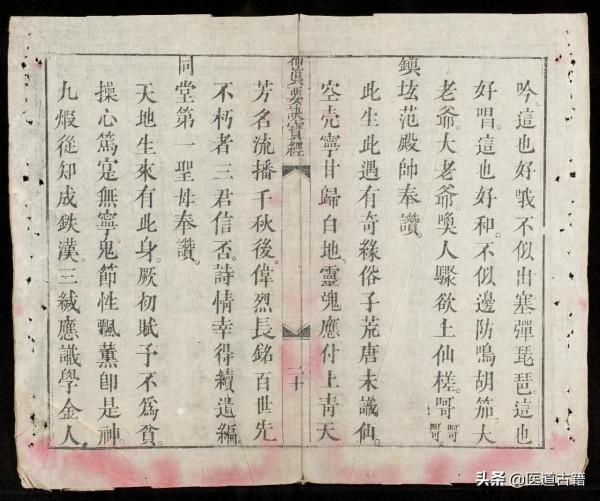 吟。這也好哦不似出塞彈琵琶。這也
好唱。這也好和。不似邊防鳴胡笳。大
老爺。大老爺。喚人驟欲上仙槎。呵呵呵
鎮坛范殿帥奉讚。
此生此遇有奇緣俗子荒唐未識仙。
空壳寧甘歸白地。靈魂應付上靑天
仙眞要訣寳經
二十
芳名流播千秋後。偉烈長銘百世先
不朽者三君信否。詩情幸得續遺編。
同堂第一聖母奉讚。
天地生來有此身。厥初賦予不爲貧。
操心篤寔無寧鬼節性飄薰卽是神。
九煅從知成鉄漢三緘應識學金人。
头条 @医道古籍